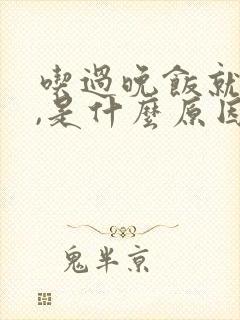 喫過晚飯就
,是什麼原因
鬼半京